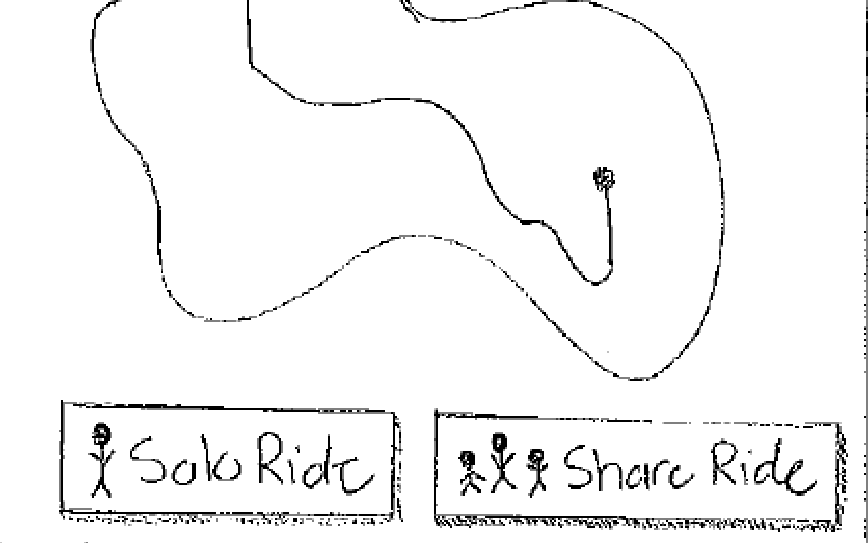 Solo Ride
Share Ride